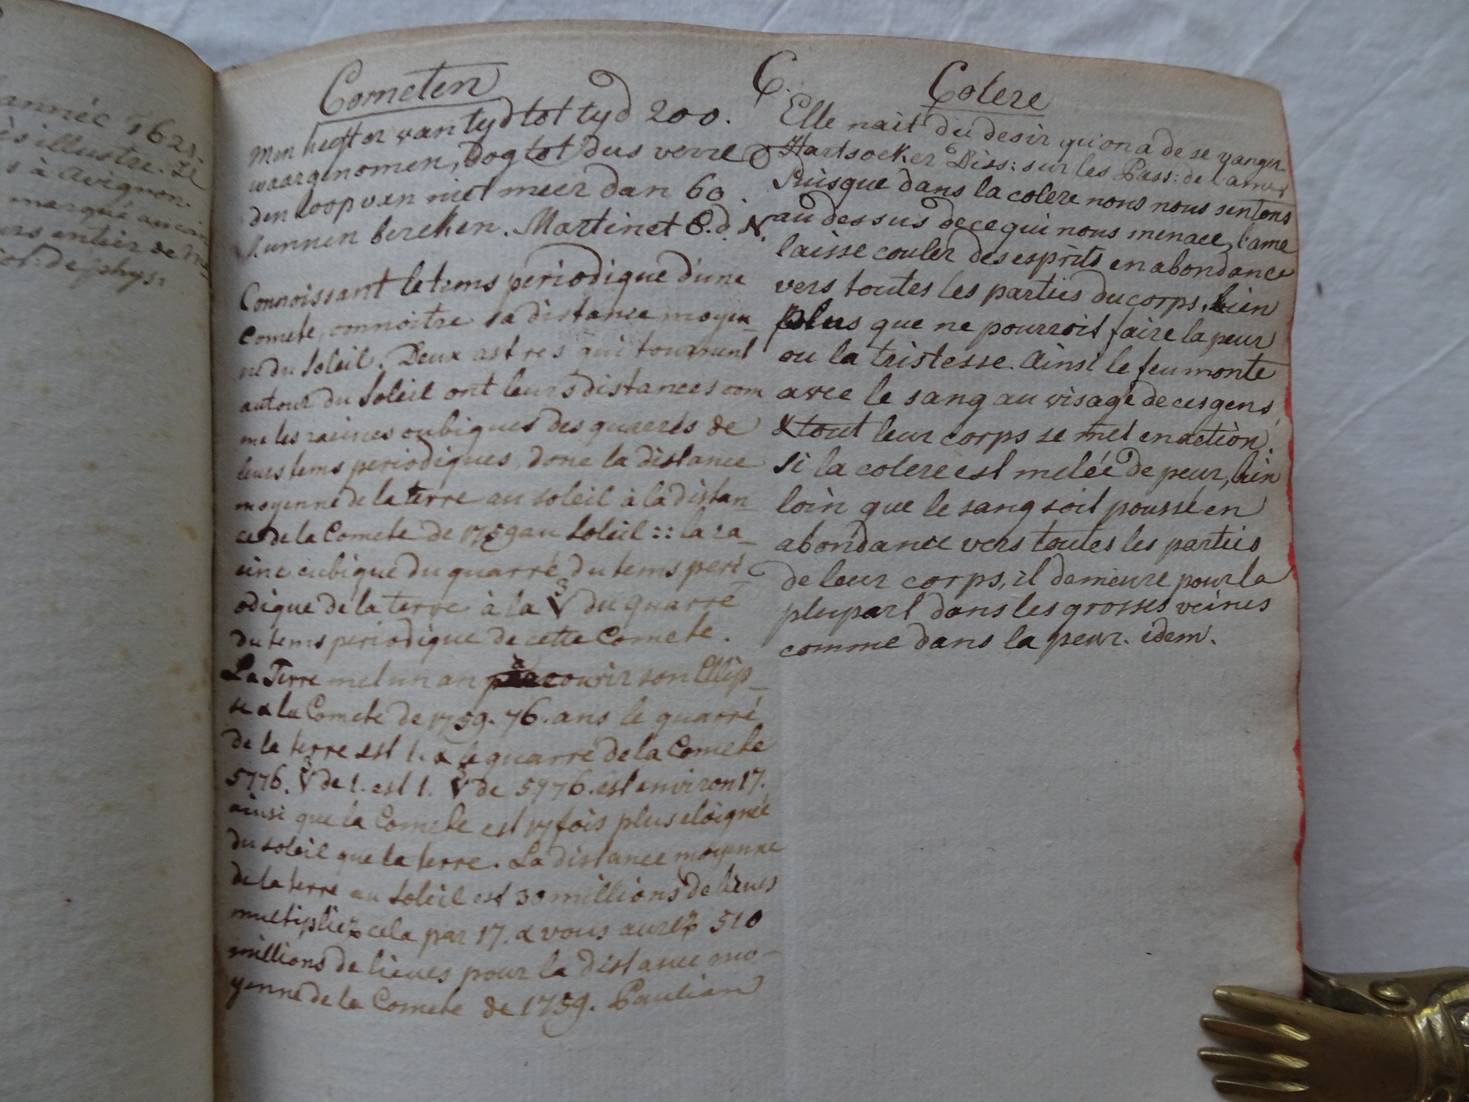 année 1621.
ès illustre. Le
s à Avignon.
marqué au can
urs entier de
de phys:
C.
Cometen
Men heeft er van tyd tot tyd 200.
waargenomen, dog tot dus verre
den loop van niet meer dan 60
kunnen bereken. Martinet C.d.N.
Connoissant le tems periodique d'une
Comete, connoitre sa distance moyen_
ne du Soleil. Deux astres qui tournent
autour du Soleil ont leurs distances com
me les racines cubiques des quarrés de
leurs tems periodiques, donc la distance
moyenne de la terre au soleil à la distan_
ce de la Comete de 1759 au Soleil :: la ra_
cine cubique du quarré du tems peri
odique de la terre à la ∛ du quarré
du tems periodique de cette Comete.
La Terre met un an parcourir son Ellip_
se & la Comete de 1759. 76. ans le quarré
de la terre est 1. & le quarré de la Comete
5776. ∛ de 1. est 1. ∛ de 5776. est environ 17.
ainsi que la Comete est 17 fois plus eloignée
du soleil que la terre. La distance moyenne
de la terre au Soleil est 30 millions de lieues
multipliez cela par 17. & vous aurez 510
millions de lieues pour la distance mo-
yenne de la Comete de 1759. Paulian
Colere
Elle nait du desir qu'on a de se vanger
Hartsoeker Diss: sur les Pass: de l'ame
Puisque dans la colere nous nous sentons
au dessus de ce qui nous menace, l'ame
laisse couler des esprits en abondance
vers toutes les parties du corps, bien
plus que ne pourroit faire la peur
ou la tristesse. Ainsi le feu monte
avec le sang au visage de ces gens,
& tout leur corps se met en action.
Si la colere est melée de peur, bien
loin que le sang soit poussé en
abondance vers toutes les parties
de leur corps, il demeure pour la
plupart dans les grosses veines
comme dans la peur. idem.